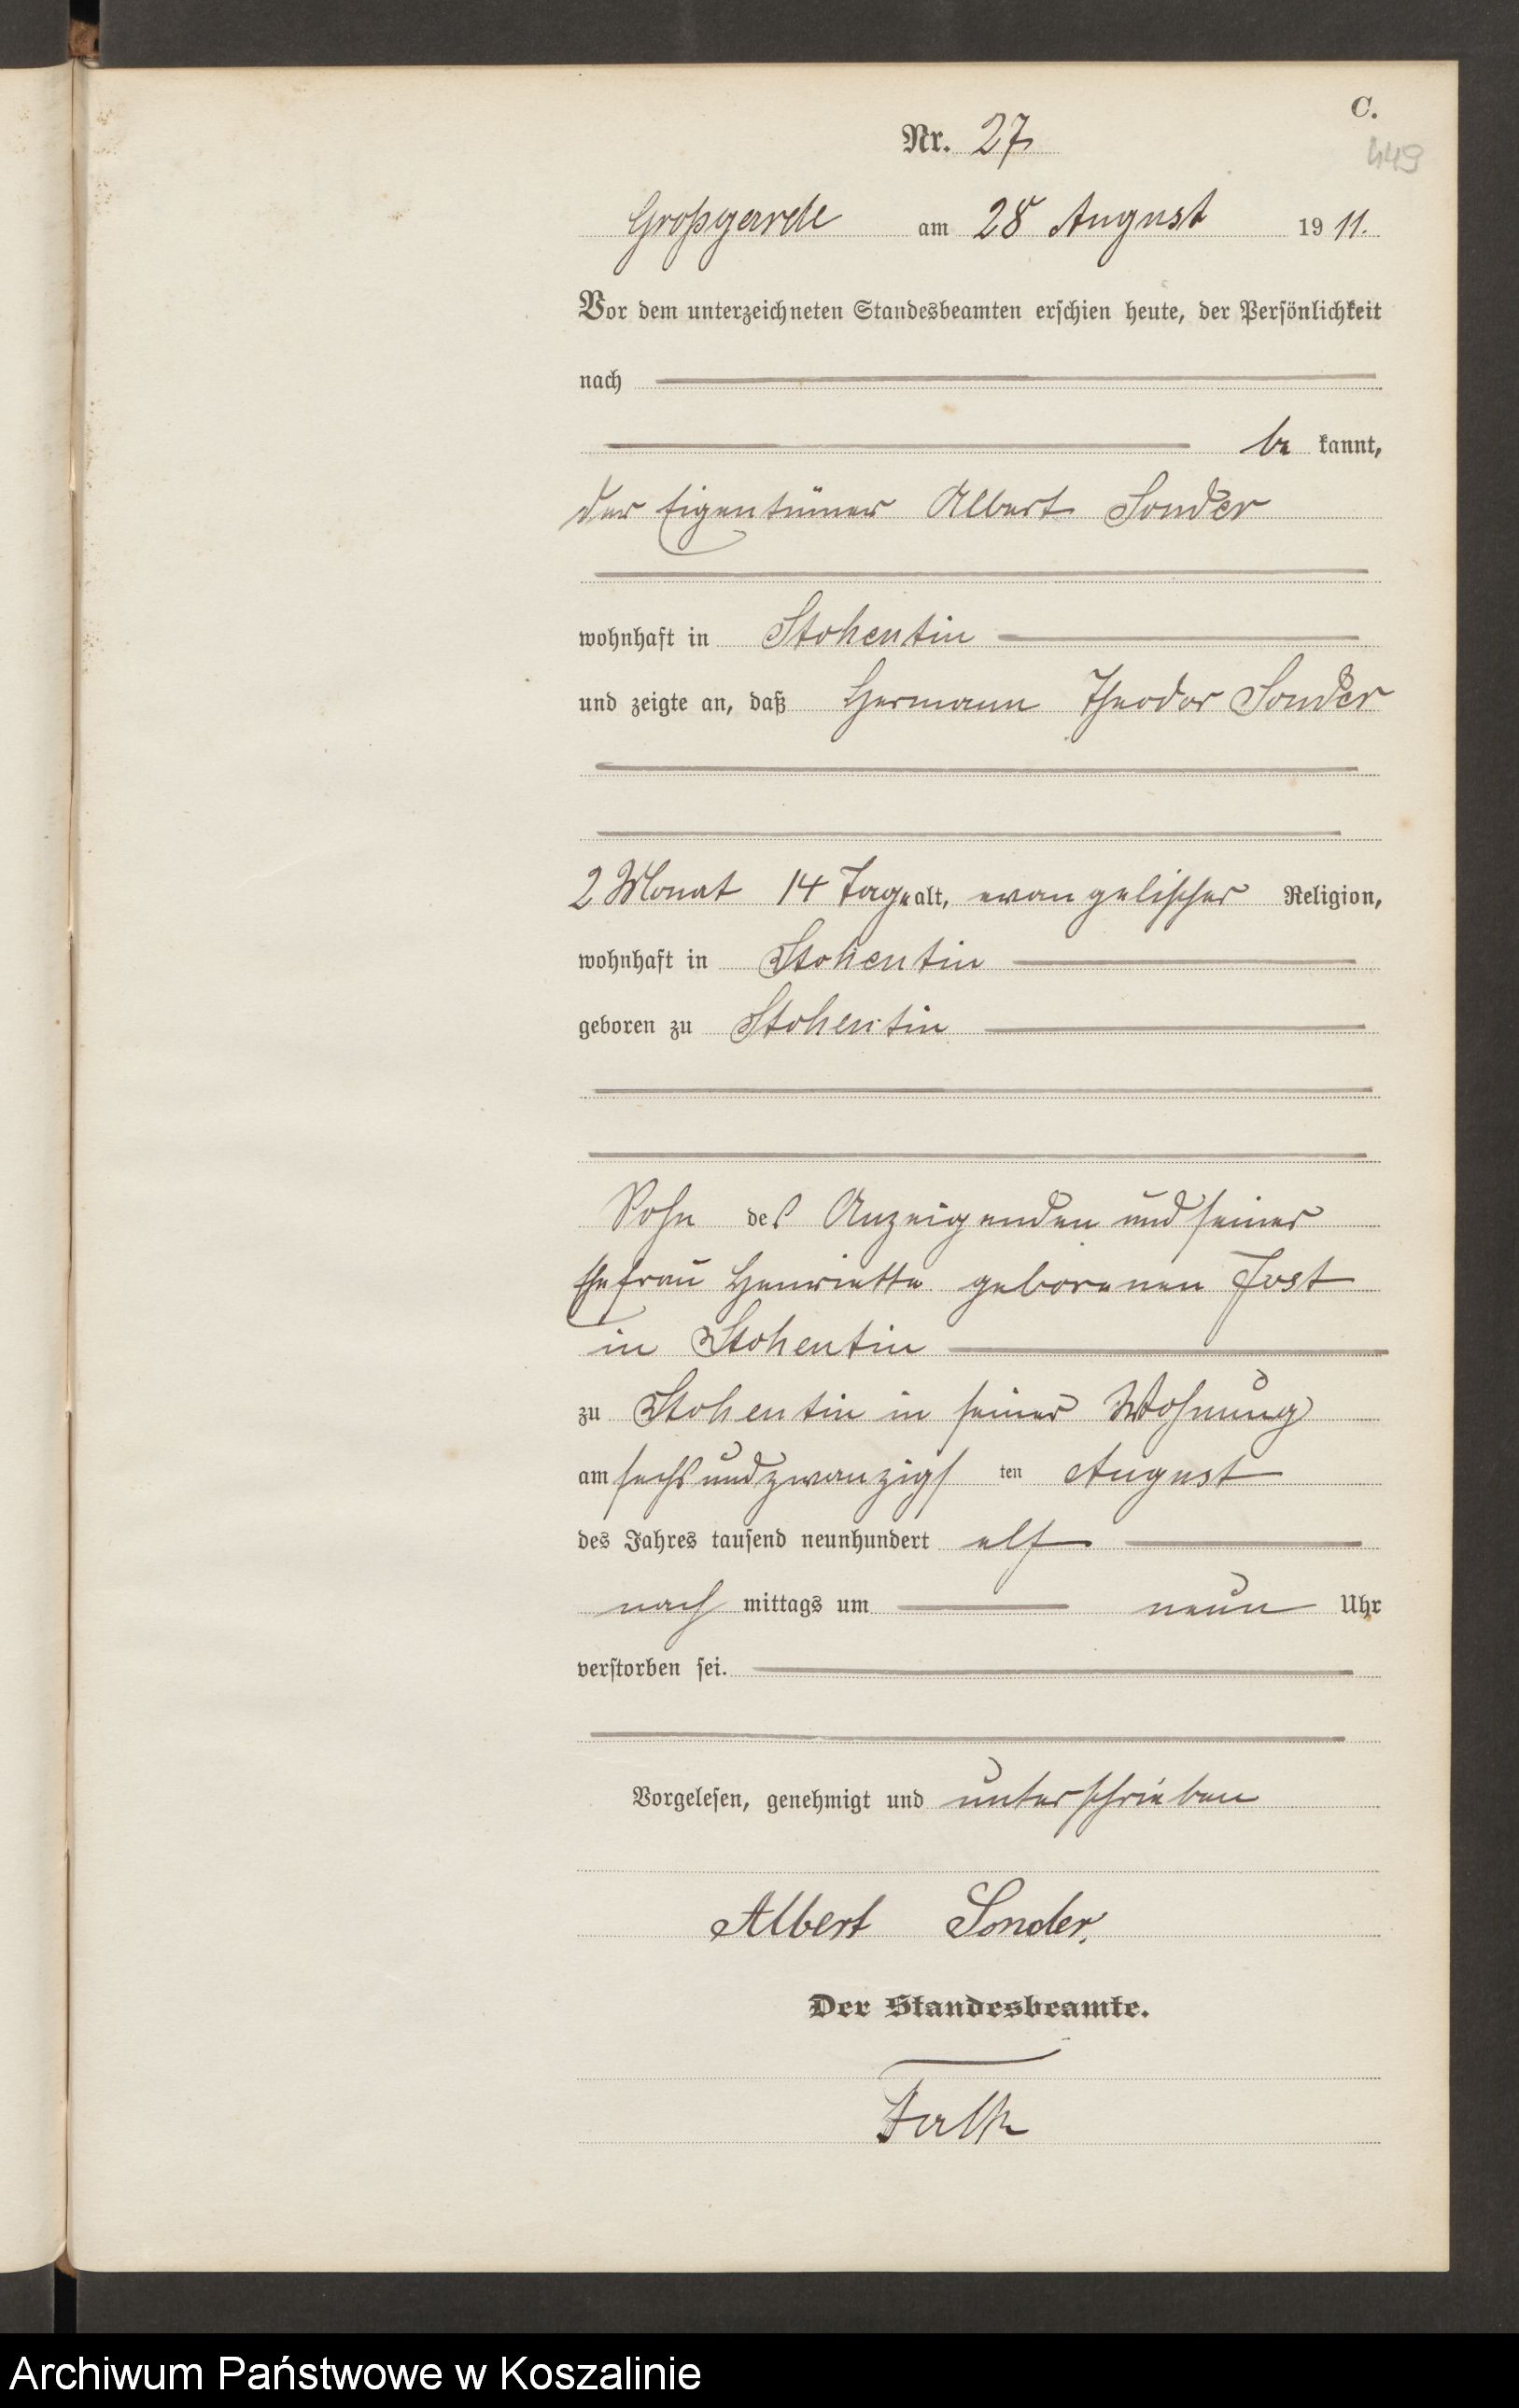 C.
449
Nr. 27
Großgarde am 28 August 1911.
Vor dem unterzeichneten Standesbeamten erschien heute, der Persönlichkeit
nach
be kannt,
der Eigentümer Albert Sonder
wohnhaft in Stohentin
und zeigte an, daß Hermann Theodor Sonder
2 Monat 14 Tage alt, evangelischer Religion,
wohnhaft in Stohentin
geboren zu Stohentin
Sohn des Anzeigenden und seiner
Ehefrau Henriette geborenen Jost
in Stohentin
zu Stohentin in seiner Wohnung
am sechsundzwanzigsten August
des Jahres tausend neunhundert elf
nach mittags um neun Uhr
verstorben sei.
Vorgelesen, genehmigt und unterschrieben
Albert Sonder.
Der Standesbeamte.
Falk
Archiwum Państwowe w Koszalinie